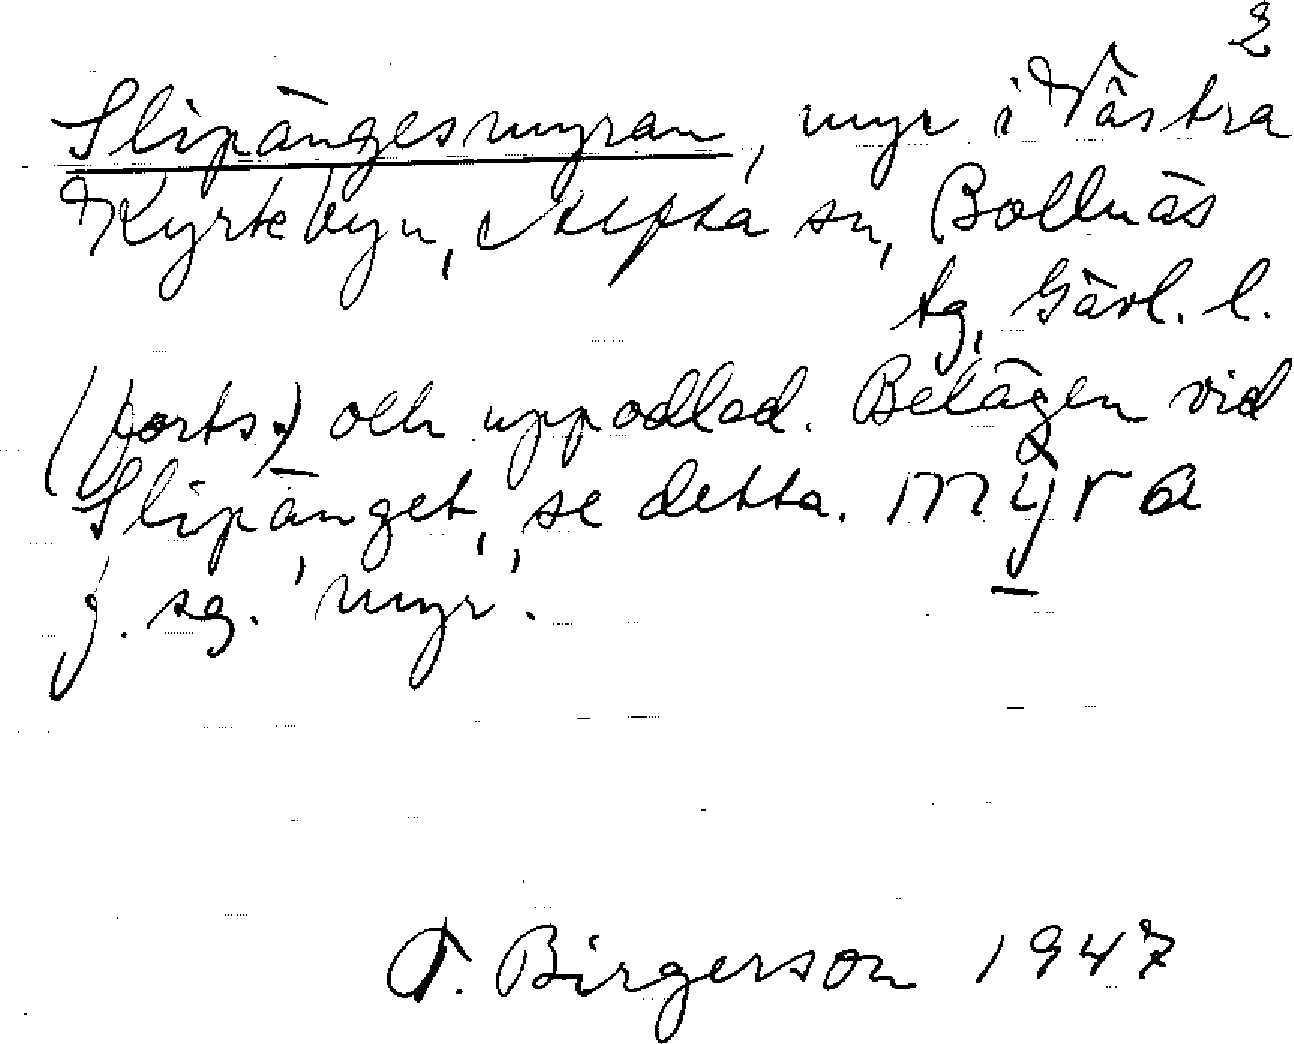 2
Slipängesmyran, myr i Västra
Kyrkebyn, Alfta sn, Bollnäs
tg, Gävl. l.
(forts.) och uppodlad. Belägen vid
Slipänget, se detta. myra
f. sg. 'myr'.
T. Birgerson 1947